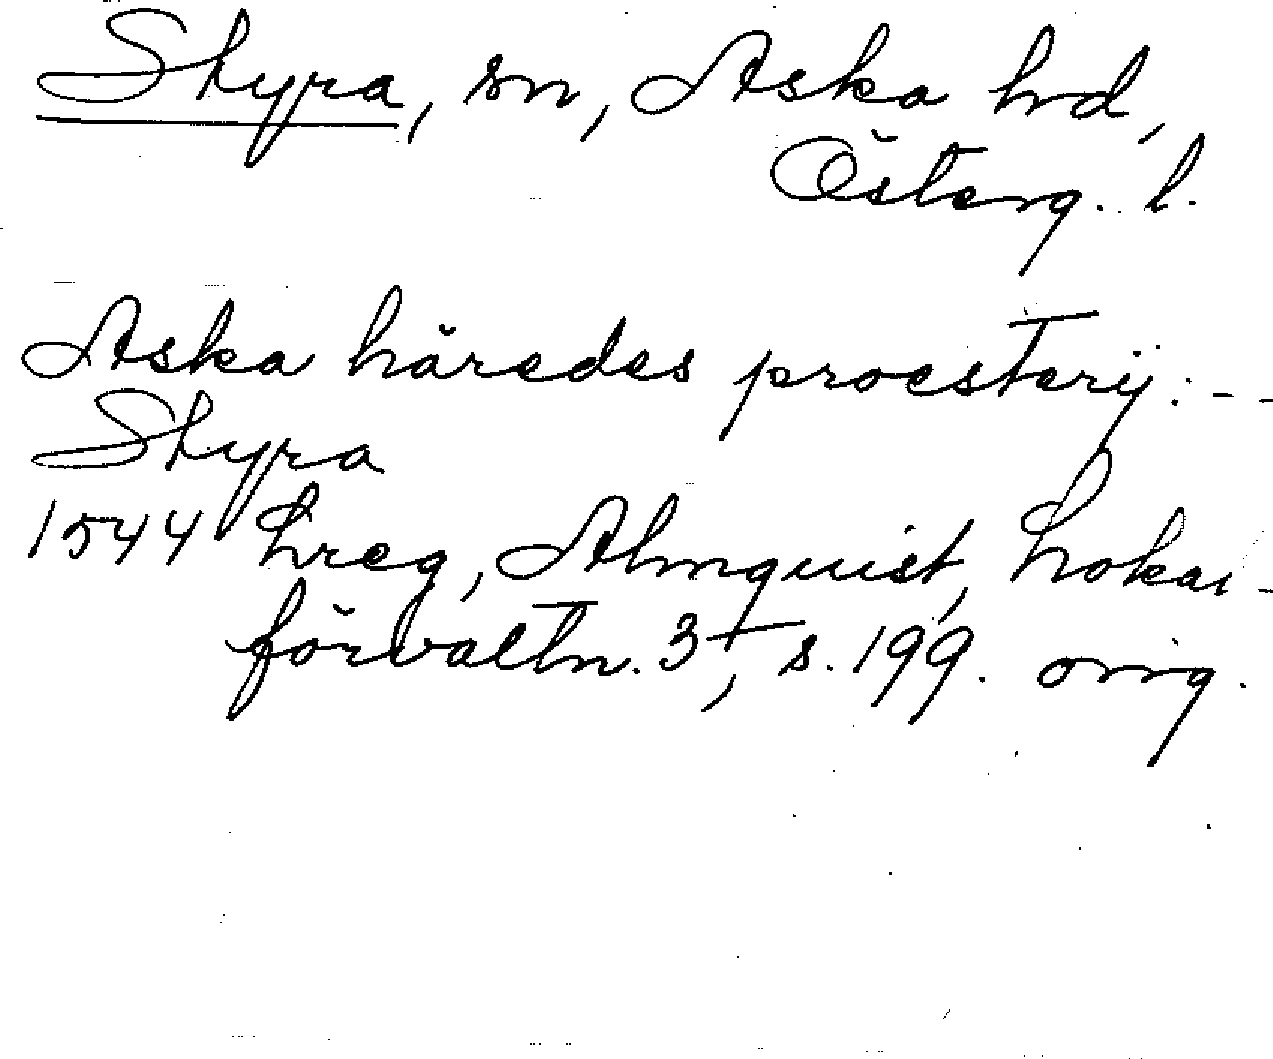 Styra, sn, Aska hd,
Österg. l.
Aska häredes proesterij: - -
Styra
1544 Lreg, Almquist, Lokal-
förvaltn. 3†, s. 199. orig.